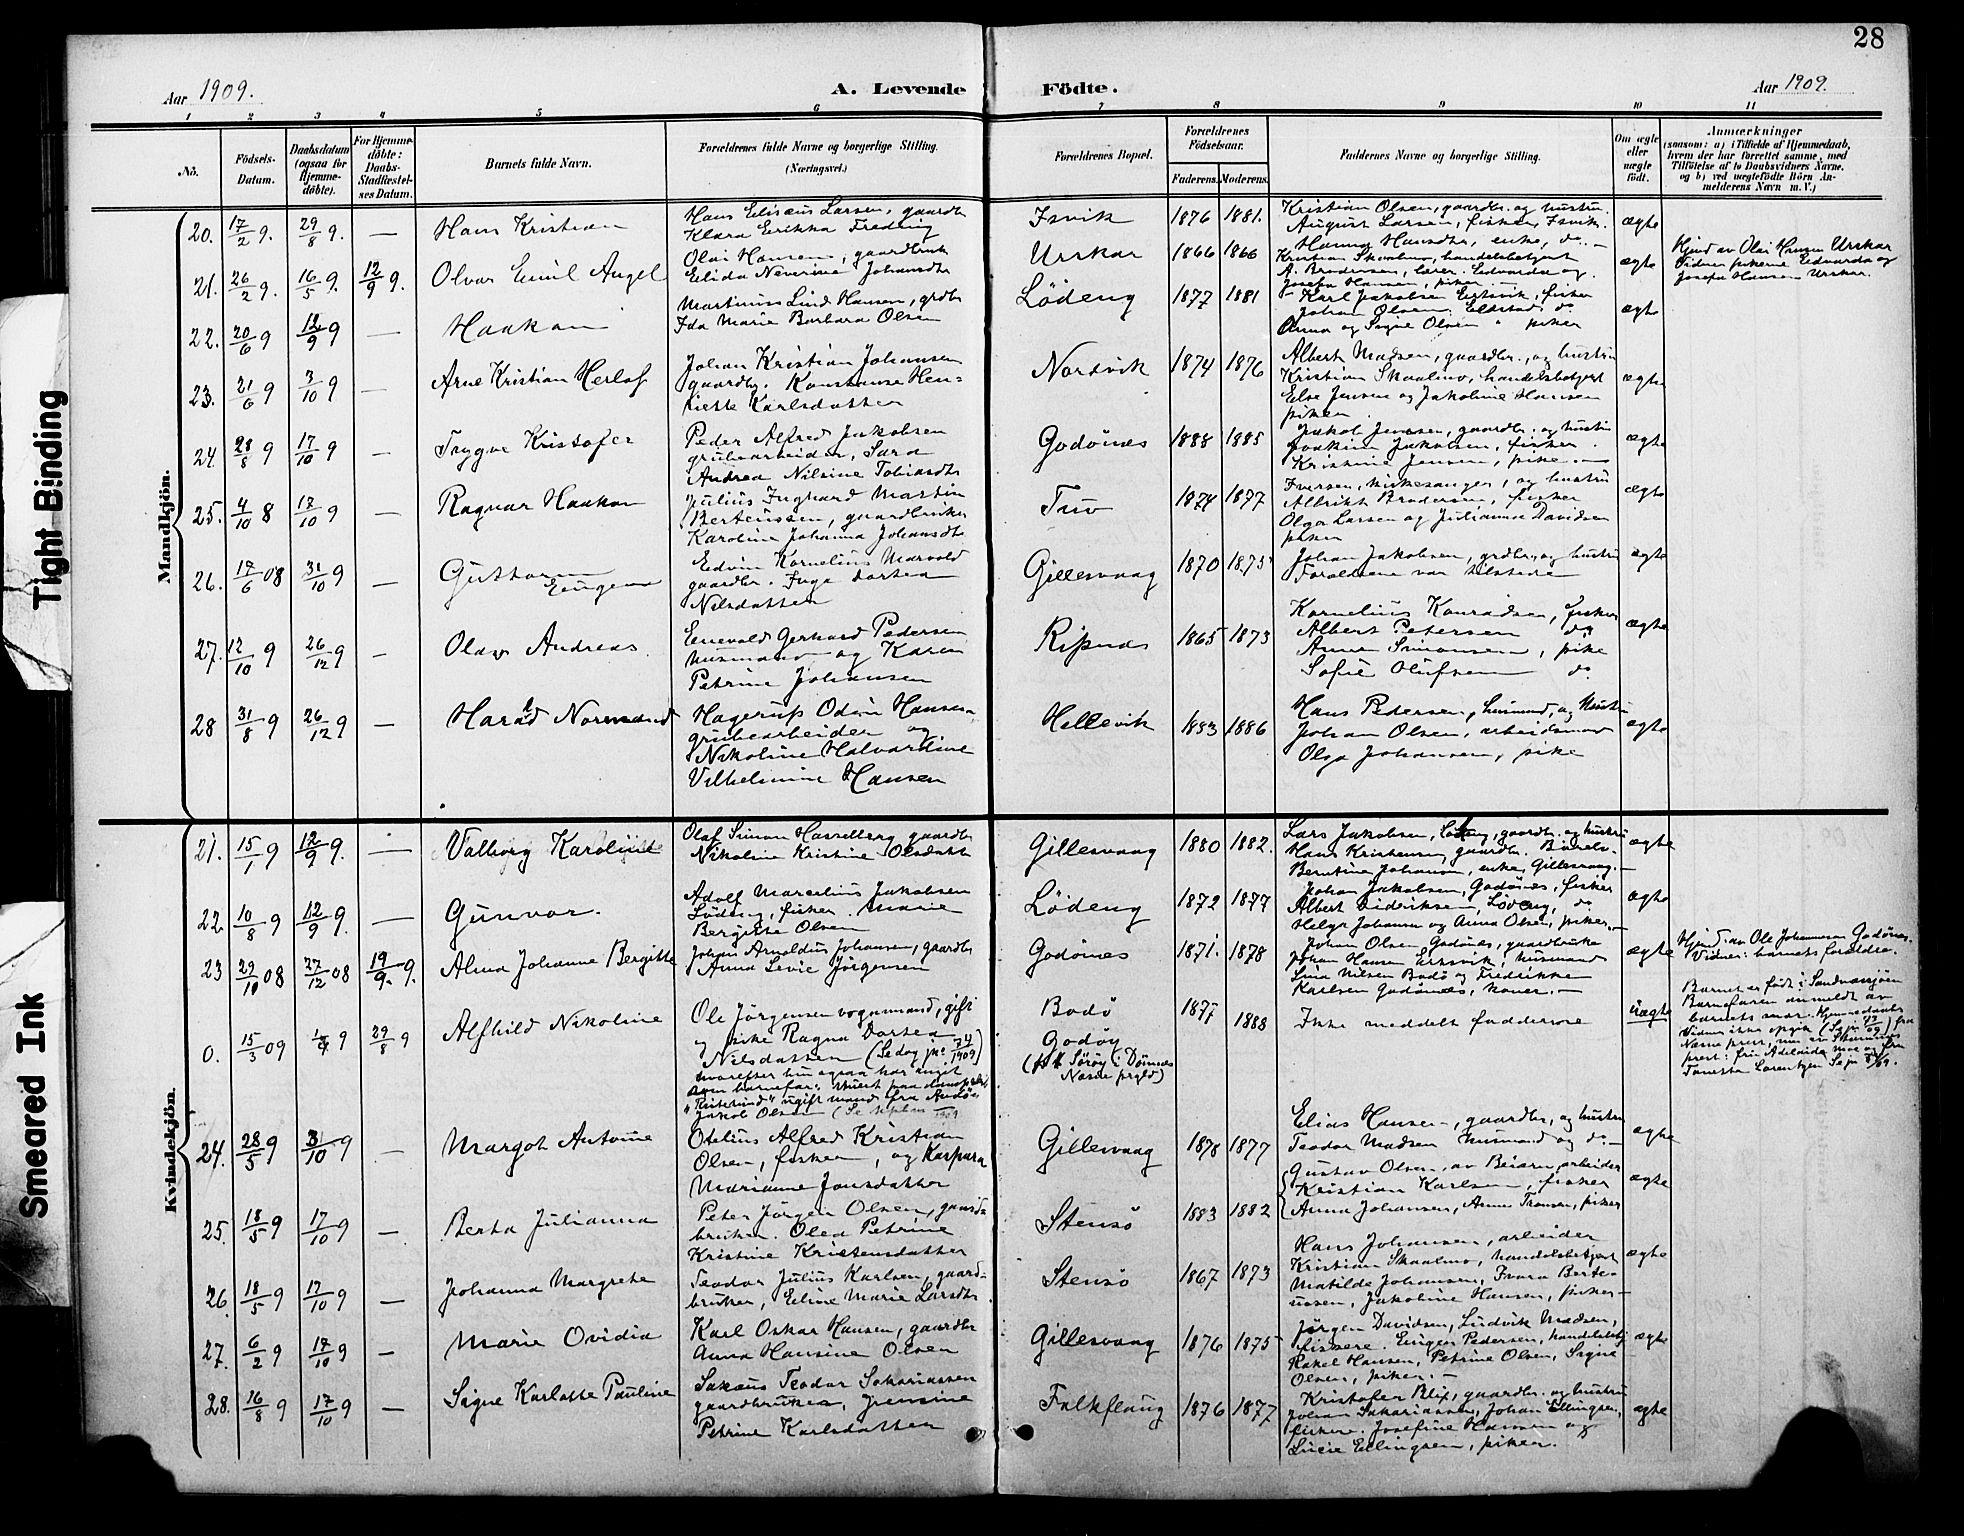 28
Aar 1909.
A. Levende Födte.
Aar 1909.
1 2 3 4 5 6 7 8 9 10 11
No.
Födsels-Datum.
Daabsdatum (ogsaa for Hjemme-döbte).
For Hjemme-döbte: Daabs-Stadfæstel-ses Datum.
Barnets fulde Navn.
Forældrenes fulde Navne og borgerlige Stilling. (Næringsvei.)
Forældrenes Bopæl.
Forældrenes Födselsaar.
Faderens. Moderens.
Faddernes Navne og borgerlige Stilling.
Om ægte eller uægte födt.
Anmærkninger
(saasom: a) i Tilfælde af Hjemmedaab, hvem der har forrettet samme, med Tilföielse af to Daabsvidners Navne, og b) ved uægtefödte Börn Anmelderens Navn m. V.)
Mandkjön.
20. 17/2 9. 29/8 9. — Hans Kristian
Hans Elisæus Larsen, gaardbr
Klara Erikka Freding
Isvik 1876 1881.
Kristian Olsen, gaardbr. og hustru.
August Larsen, fisker, Isvik.
Hanna Hansdtr, enke, do. —
ægte
21. 26/2 9. 16/5 9. 12/9 9. Olvar Emil Angel
Olai Hansen, gaardbruk
Elida Neverine Johansdtr
Urskar 1866 1866
Kristian Skaalmo, handelsbetjent
A. Brodersen, lærer. Edvarda og
Josefa Hansen, piker —
ægte
Hjmd av Olai Hansen Urskar
Vidner pikene Edvarda og
Josefa Hansen Urskar.
22. 20/6 9 12/9 9 — Haakon
Martinus Lind Hansen, grdbr
Ida Marie Barbara Olsen
Lödeng 1877 1881
Karl Jakobsen Ertsvik, fisker
Johan Olsen, Eldstad, do
Anna og Signe Olsen " piker
ægte
23. 21/6 9 3/10 9 — Arne Kristian Herlof
Johan Kristian Johansen
gaardbr. Konstanse Hen-
riette Karlsdatter
Nordvik 1874 1876
Albert Madsen, gaardbr., og hustru
Kristian Skaalmo, handelsbetjent
Else Jensen og Jakobine Hansen
piker
ægte
24. 28/8 9 17/10 9 — Trygve Kristofer
Peder Alfred Jakobsen
grubearbeider, Sara
Andrea Nilsine Tobiasdtr
Godönes 1888 1885
Jakob Jensen, gaardbr. og hustru
Joakim Jakobsen, fisker.
Kristine Jensen, pike. —
ægte
25. 4/10 8 17/10 9 — Ragnar Haakon
Julius Inghard Martin
Berteussen, gaardbruker
Karoline Johanna Johansdtr
Tuv 1874 1877
Iversen, kirkesanger, og hustru
Albrikt Brodersen, fisker
Olga Larsen og Julianna Davidsen
piker
ægte
26. 17/6 08 31/10 9 — Guttorm
Eugen
Edvin Kornelius Marvold
gaardbr. Inga Dortea
Nilsdatter
Gillesvaag 1870 1875
Johan Jakobsen, grdbr., og hustru
Forældrene var tilstede
ægte
27. 12/10 9 26/12 9 — Olav Andreas.
Enevold Gerhard Pedersen
husmand og Karen
Petrine Johansen
Ripnes 1865 1873
Kornelius Konradsen, fisker
Albert Petersen do
Anna Simonsen, pike
Sofie Olufsen do.
ægte
28 31/8 9 26/12 9 — Harald Normand
Hagerup Odin Hansen,
grubearbeider og
Nikoline Halvardine
Vilhelmine Hansen
Hellevik 1883 1886
Hans Pedersen, husmand, og Hustru
Johan Olsen, arbeidsmand
Olga Johansen, pike
ægte
Kvindekjön.
21. 15/1 9 12/9 9. — Valborg Karoline
Olaf Simon Hasselberg gaardbr
Nikoline Kristine Olsdatt
Gillesvaag 1880 1882.
Lars Jakobsen, Lödeng, gaardbr. og hustru
Hans Kristensen, gaardbr.
Berntine Johanson, enke, Gillesvaag. —
ægte
22 10/8 9 12/9 9. — Gunvor.
Adolf Marselius Jakobsen
Lödeng, fisker. Marie
Bergitte Olsen
Lödeng 1872 1877
Johan Jakobsen, Godönes, fisker
Albert Didriksen, Lödeng, do
Helga Johansen og Anna Olsen, piker. —
ægte
23 29/10 08 27/12 08 19/9. 9. Alma Johanne Bergitte
Johan Arnoldus Johansen, gaardbr
Anna Levie Jörgensen
Godönes 1871. 1878
Johan Olsen Godönes, gaardbruker
Johan Hansen Ertsvik, husmand
Lina Nilsen Bodö og Fredrikke
Karlsen Godönes, koner. —
ægte
Hjmd. av Ole Johannesen Godönes.
Vidner: barnets forældre.
0. 15/3 09 9 29/8 9 Alfhild Nikoline
Ole Jörgensen vognmand, gift
og pike Ragna Dortea
Nilsdatter (Se dog jno 74/1909)
hvorefter hun ogsaa har angit
som barnefar: paa
ugift mand fra
Jakob Olsen (Se
Bodö
Godöy
Sörøy i Dönnes
Nesne prgld)
1877
1888
Ikke meddelt fadderne
uægte
Barnet er födt i Sandnessjöen
Barnefaren anmeldt av
barnets mor. Hjemmedöbt
Vidner ikke opgit
24. 28/5 9 31/10 9 — Margot Antonie
Otelius Alfred Kristian
Olsen, fisker, og Kaspara
Marianne Jonsdatter
Gillesvaag 1878 1877
Elias Hansen, gaardbr, og hustru
Teodor Madsen husmand og do —
ægte
25. 18/5 9 17/10 9 — Berta Julianna
Peter Jörgen Olsen, gaard-
bruker. Olea Petrine
Kristine Kristensdatter
Stensö 1883 1882
Gustav Olsen, av Beiarn, arbeider
Kristian Karlsen, fisker
Anna Johansen, Anna Tronsen, piker
ægte
26. 18/5 9 17/10 9 — Johanna Margrete
Teodor Julius Karlsen, gaard-
bruker, Eline Marie Larsdtr
Stensö 1867 1873
Hans Johansen, arbeider
Kristian Skaalmo, handelsbetjent
Matilde Johansen, Ivara Berte-
ussen, Jakobine Hansen, piker —
ægte
27. 6/2 9 17/10 9 — Marie Ovidia
Karl Oskar Hansen, gaardbr
Anna Hansine Olsen
Gillesvaag 1876 1875
Jörgen Davidsen, Ludvik Madsen,
fiskere. Eugen Pedersen, handelsbetj
Rakel Hansen, Petrine Olsen, Signe
Olsen, piker. —
ægte
28. 16/8 9 17/10 9 — Signe Karlotte Pauline
Sakæus Teodor Sakariassen
gaardbruker, Jensine
Petrine Karlsdatter
Falkflaug 1876 1877
Kristofer Blix, gaardbr. og hustru
Johan Sakariassen, Johan Ellingsen,
fiskere. Josefine Hansen og
Lucie Ellingsen, piker.
ægte
Tight Binding
Smeared Ink